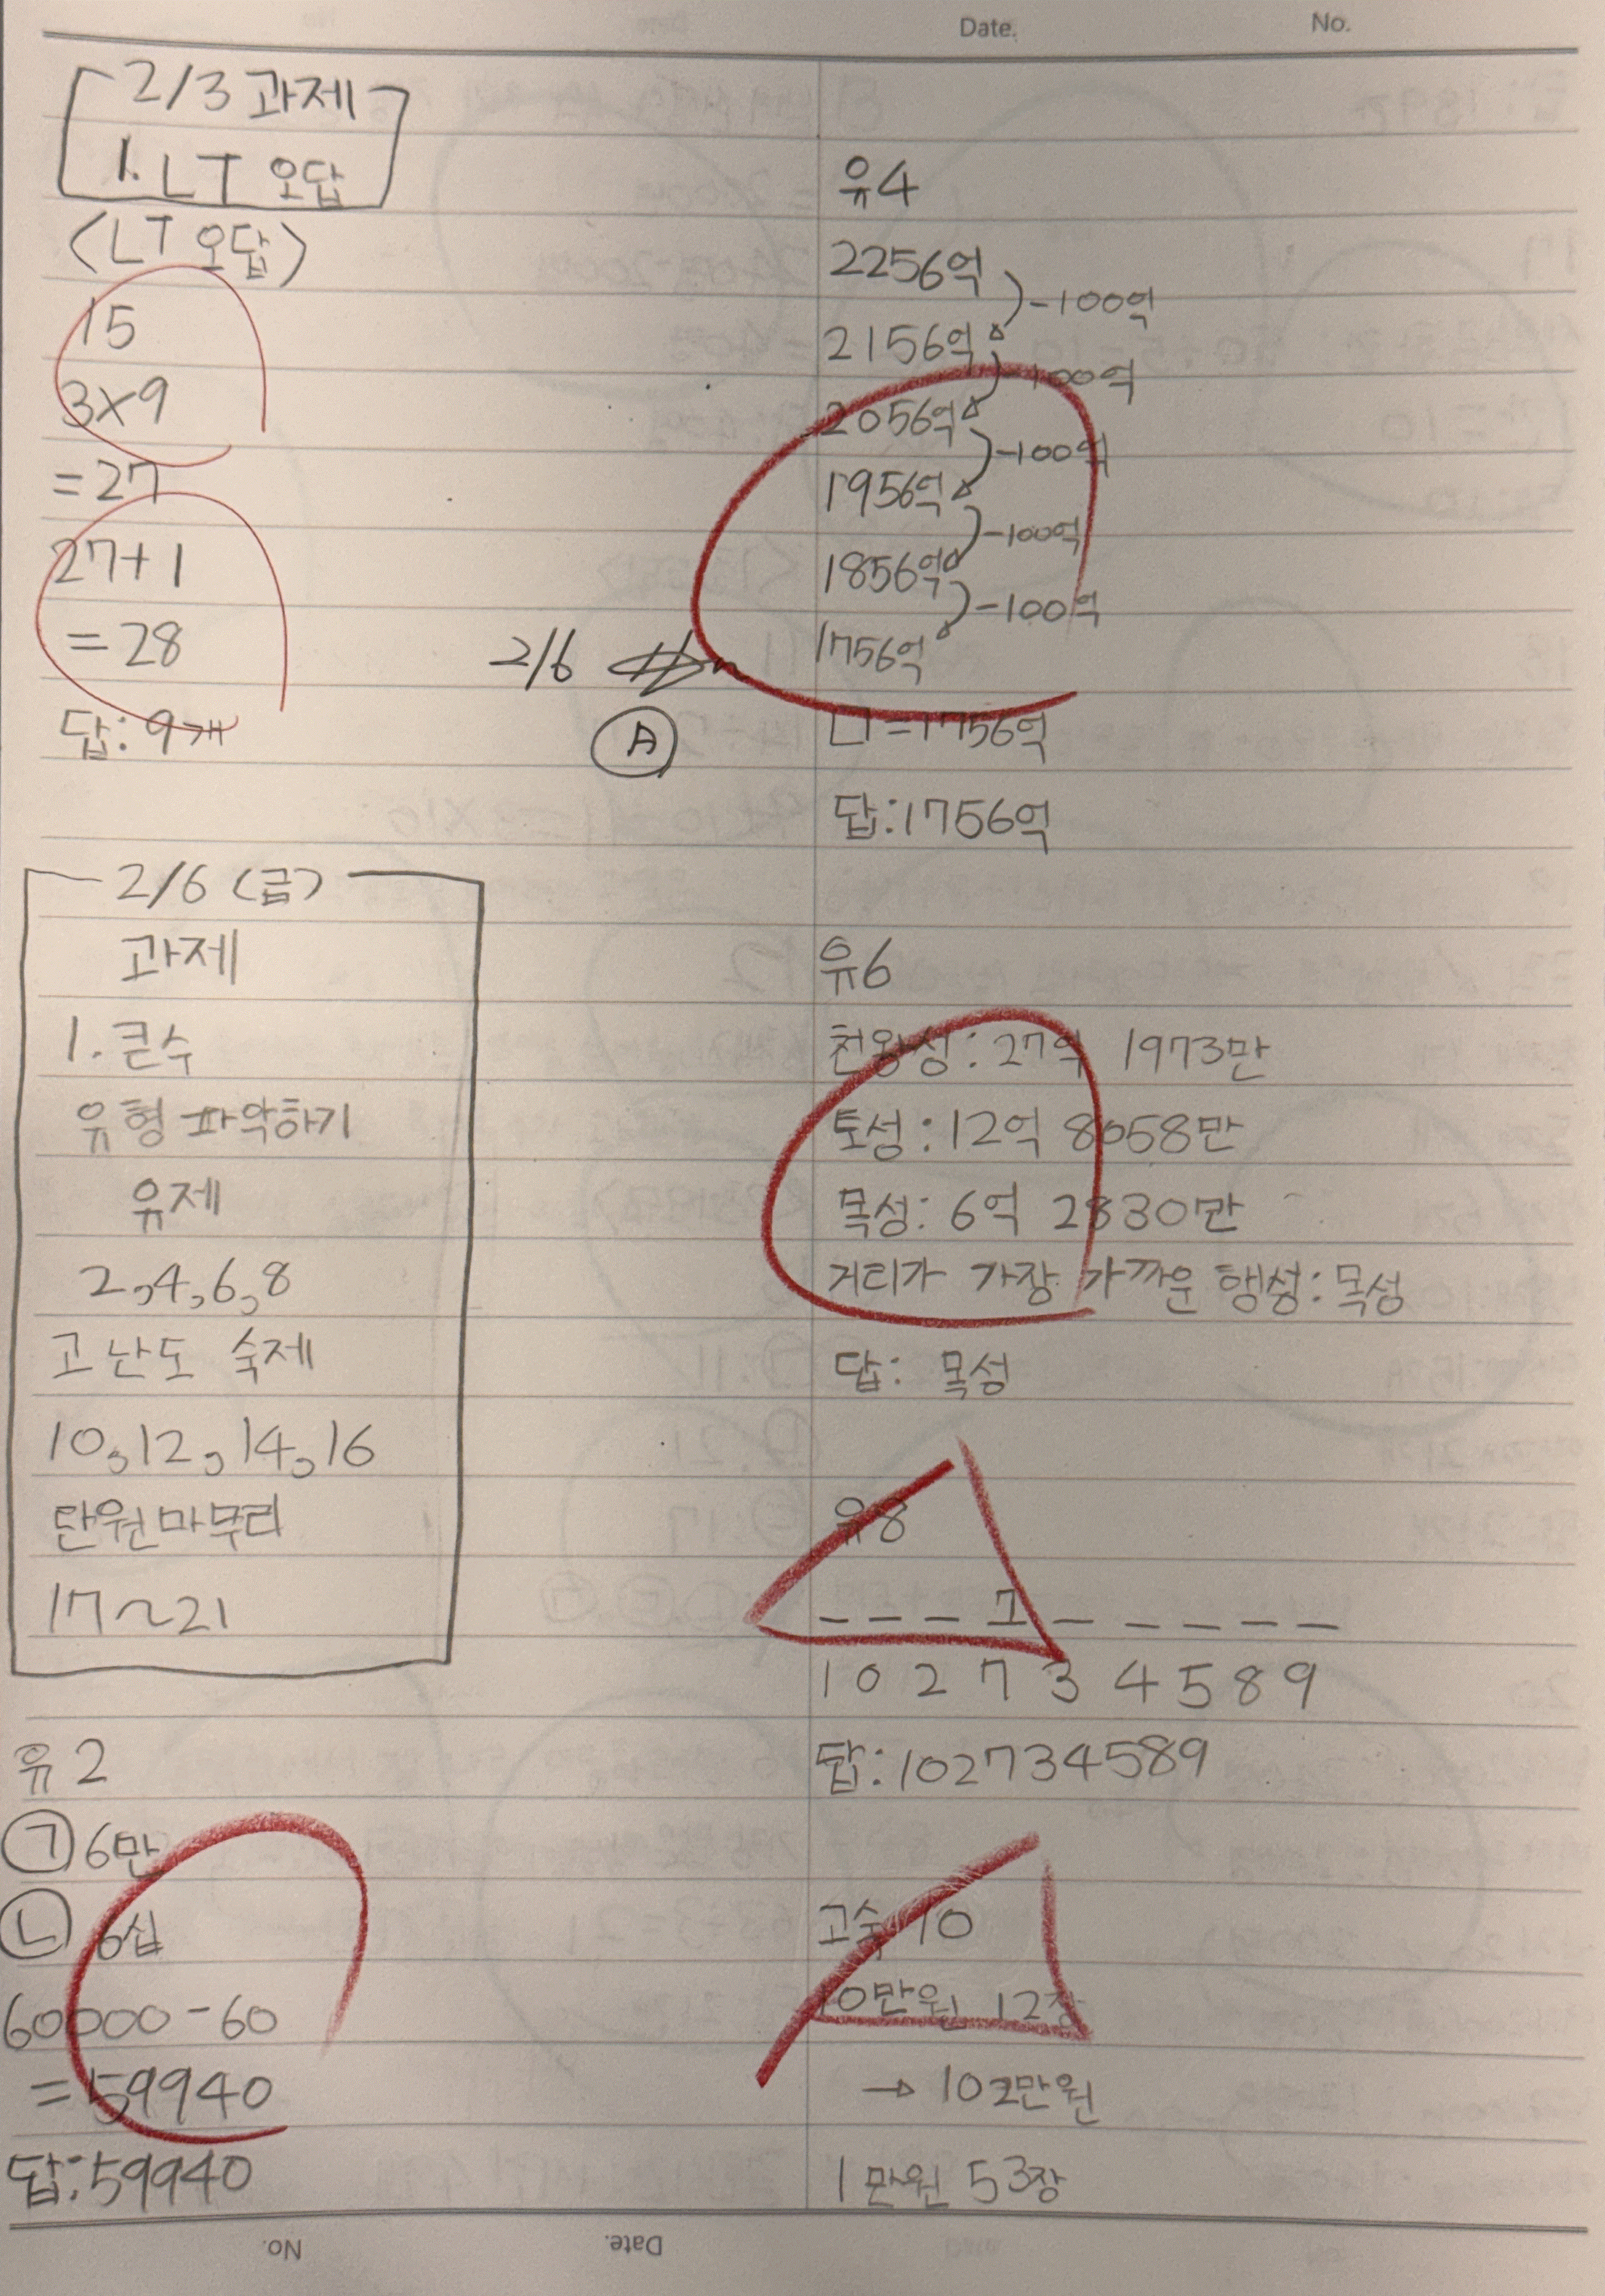 Date.
No.
2/3 과제
1. LT 오답
<LT 오답>
15
3×9
=27
27+1
=28
답: 9개
2/6
A
2/6 (금)
과제
1. 큰수
유형 파악하기
유제
2,4,6,8
고난도 숙제
10,12,14,16
단원마무리
17~21
유2
㉠ 6만
㉡ 6십
60000-60
=59940
답:59940
유4
2256억
-100억
2156억
-100억
2056억
-100억
1956억
-100억
1856억
-100억
1756억
□=1756억
답:1756억
유6
천왕성: 27억 1973만
토성: 12억 8058만
목성: 6억 2830만
거리가 가장 가까운 행성: 목성
답: 목성
유8
_ _ _ 7 _ _ _ _ _ _
1 0 2 7 3 4 5 8 9
답:102734589
고숙 10
10만원 12장
→ 102만원
1만원 53장
No.
Date.